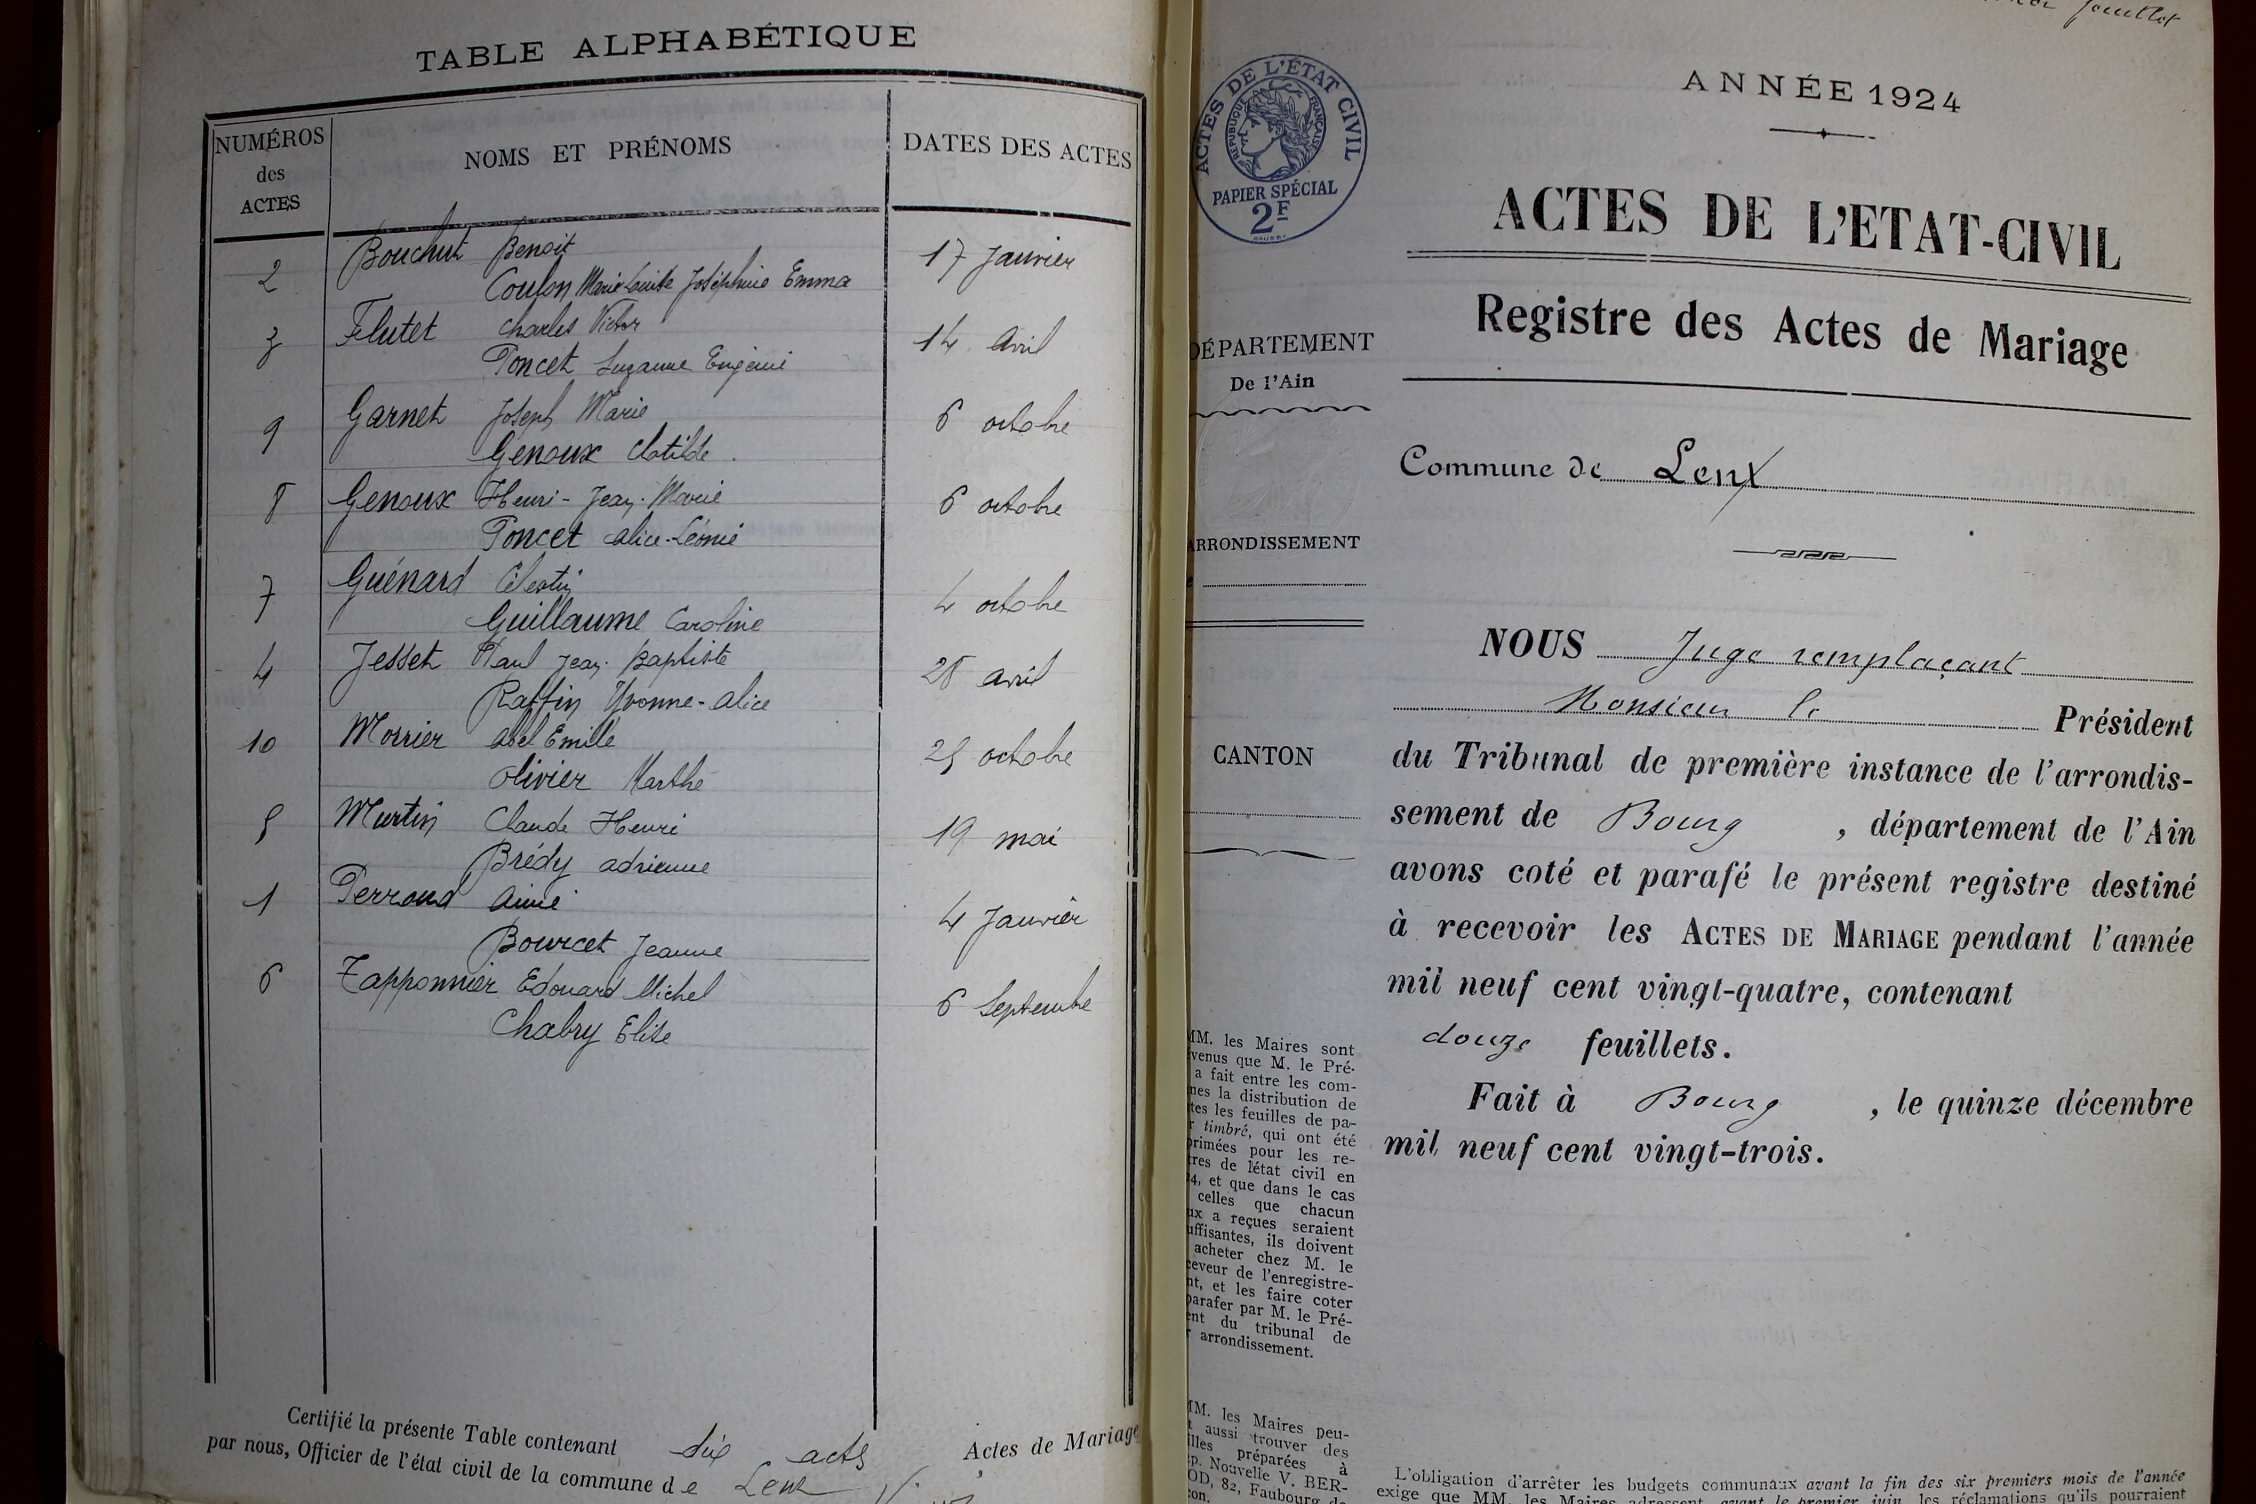 TABLE ALPHABÉTIQUE
NUMÉROS des ACTES
NOMS ET PRÉNOMS
DATES DES ACTES
2 Bouchut Benoit 17 Janvier
Coulon Marie Louise Joséphine Emma
3 Flutet Charles Victor 14 Avril
Poncet Suzanne Eugénie
9 Garnet Joseph Marie 6 octobre
Genoux Clotilde
8 Genoux Henri-Jean-Marie 6 octobre
Poncet Alice-Léonie
7 Guénard Célestin 4 octobre
Guillaume Caroline
4 Jesset Paul Jean-Baptiste 28 avril
Raffin Yvonne-Alice
10 Morrier Abel Emile 25 octobre
Olivier Marthe
5 Murtin Claude Henri 19 mai
Brédy Adrienne
1 Perroud Aimé 4 Janvier
Bourcet Jeanne
6 Tapponnier Edouard Michel 6 Septembre
Chabry Elise
Certifié la présente Table contenant dix actes Actes de Mariage
par nous, Officier de l'état civil de la commune de Lent
ACTES DE L'ÉTAT CIVIL
RÉPUBLIQUE FRANÇAISE
PAPIER SPÉCIAL
2F
ANNÉE 1924
ACTES DE L'ETAT-CIVIL
Registre des Actes de Mariage
DÉPARTEMENT
De l'Ain
ARRONDISSEMENT
CANTON
Commune de Lent
NOUS Juge remplaçant
Monsieur le Président
du Tribunal de première instance de l'arrondis-
sement de Bourg, département de l'Ain
avons coté et parafé le présent registre destiné
à recevoir les ACTES DE MARIAGE pendant l'année
mil neuf cent vingt-quatre, contenant
douze feuillets.
Fait à Bourg, le quinze décembre
mil neuf cent vingt-trois.
MM. les Maires sont
venus que M. le Pré-
a fait entre les com-
nes la distribution de
tes les feuilles de pa-
r timbré, qui ont été
primées pour les re-
tres de l'état civil en
4, et que dans le cas
celles que chacun
ux a reçues seraient
uffisantes, ils doivent
acheter chez M. le
ceveur de l'enregistre-
nt, et les faire coter
parafer par M. le Pré-
ent du tribunal de
r arrondissement.
MM. les Maires peu-
t aussi trouver des
illes préparées à
p. Nouvelle V. BER-
OD, 82, Faubourg de
con.
L'obligation d'arrêter les budgets communaux avant la fin des six premiers mois de l'année
exige que MM. les Maires adressent, avant le premier juin, les réclamations qu'ils pourraient